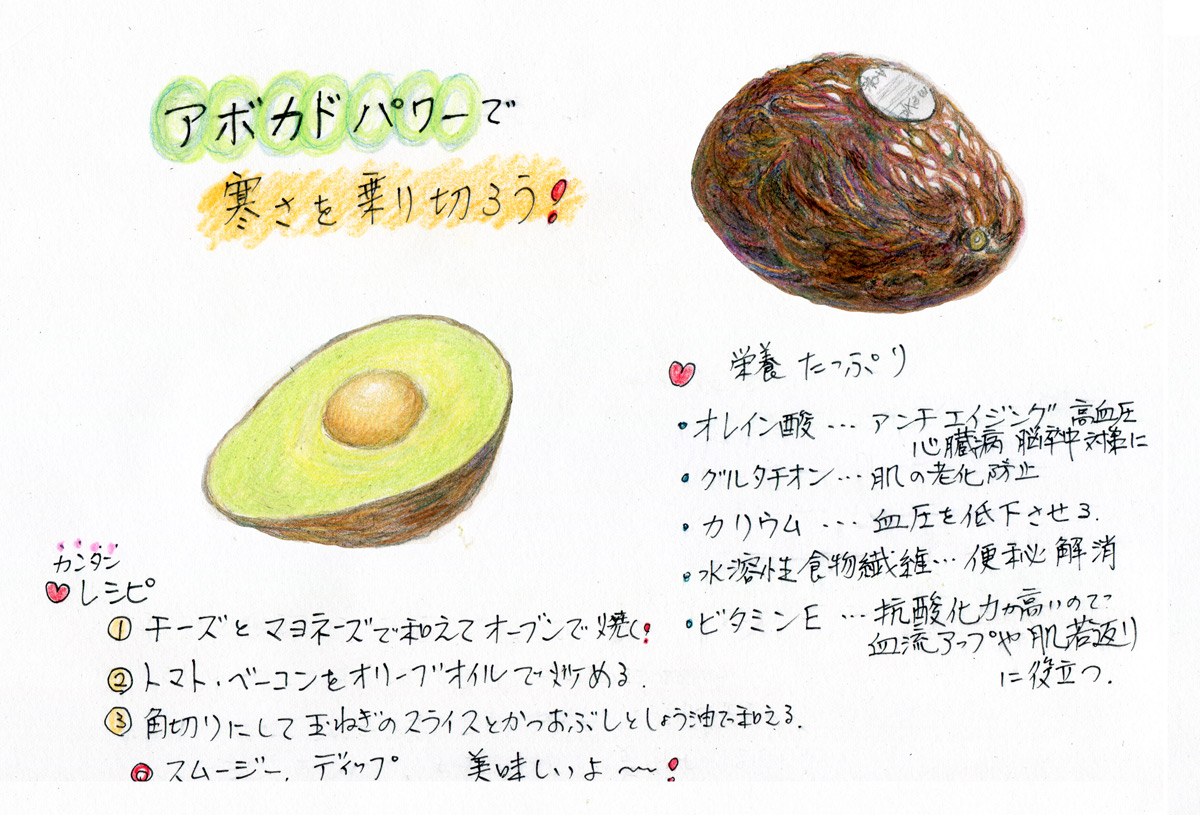 アボカドパワーで
寒さを乗り切ろう!
♥ 栄養たっぷり
・オレイン酸… アンチエイジング 高血圧
心臓病 脳卒中 対策に
・グルタチオン… 肌の老化防止
・カリウム … 血圧を低下させる.
・水溶性食物繊維… 便秘解消
・ビタミンE … 抗酸化力が高いので
血流アップや肌若返り
に役立つ.
カンタン
♥ レシピ
① チーズとマヨネーズで和えてオーブンで焼く!
② トマト・ベーコンをオリーブオイルで炒める.
③ 角切りにして玉ねぎのスライスとかつおぶしとしょう油で和える.
◎ スムージー, ディップ 美味しいよ〜!